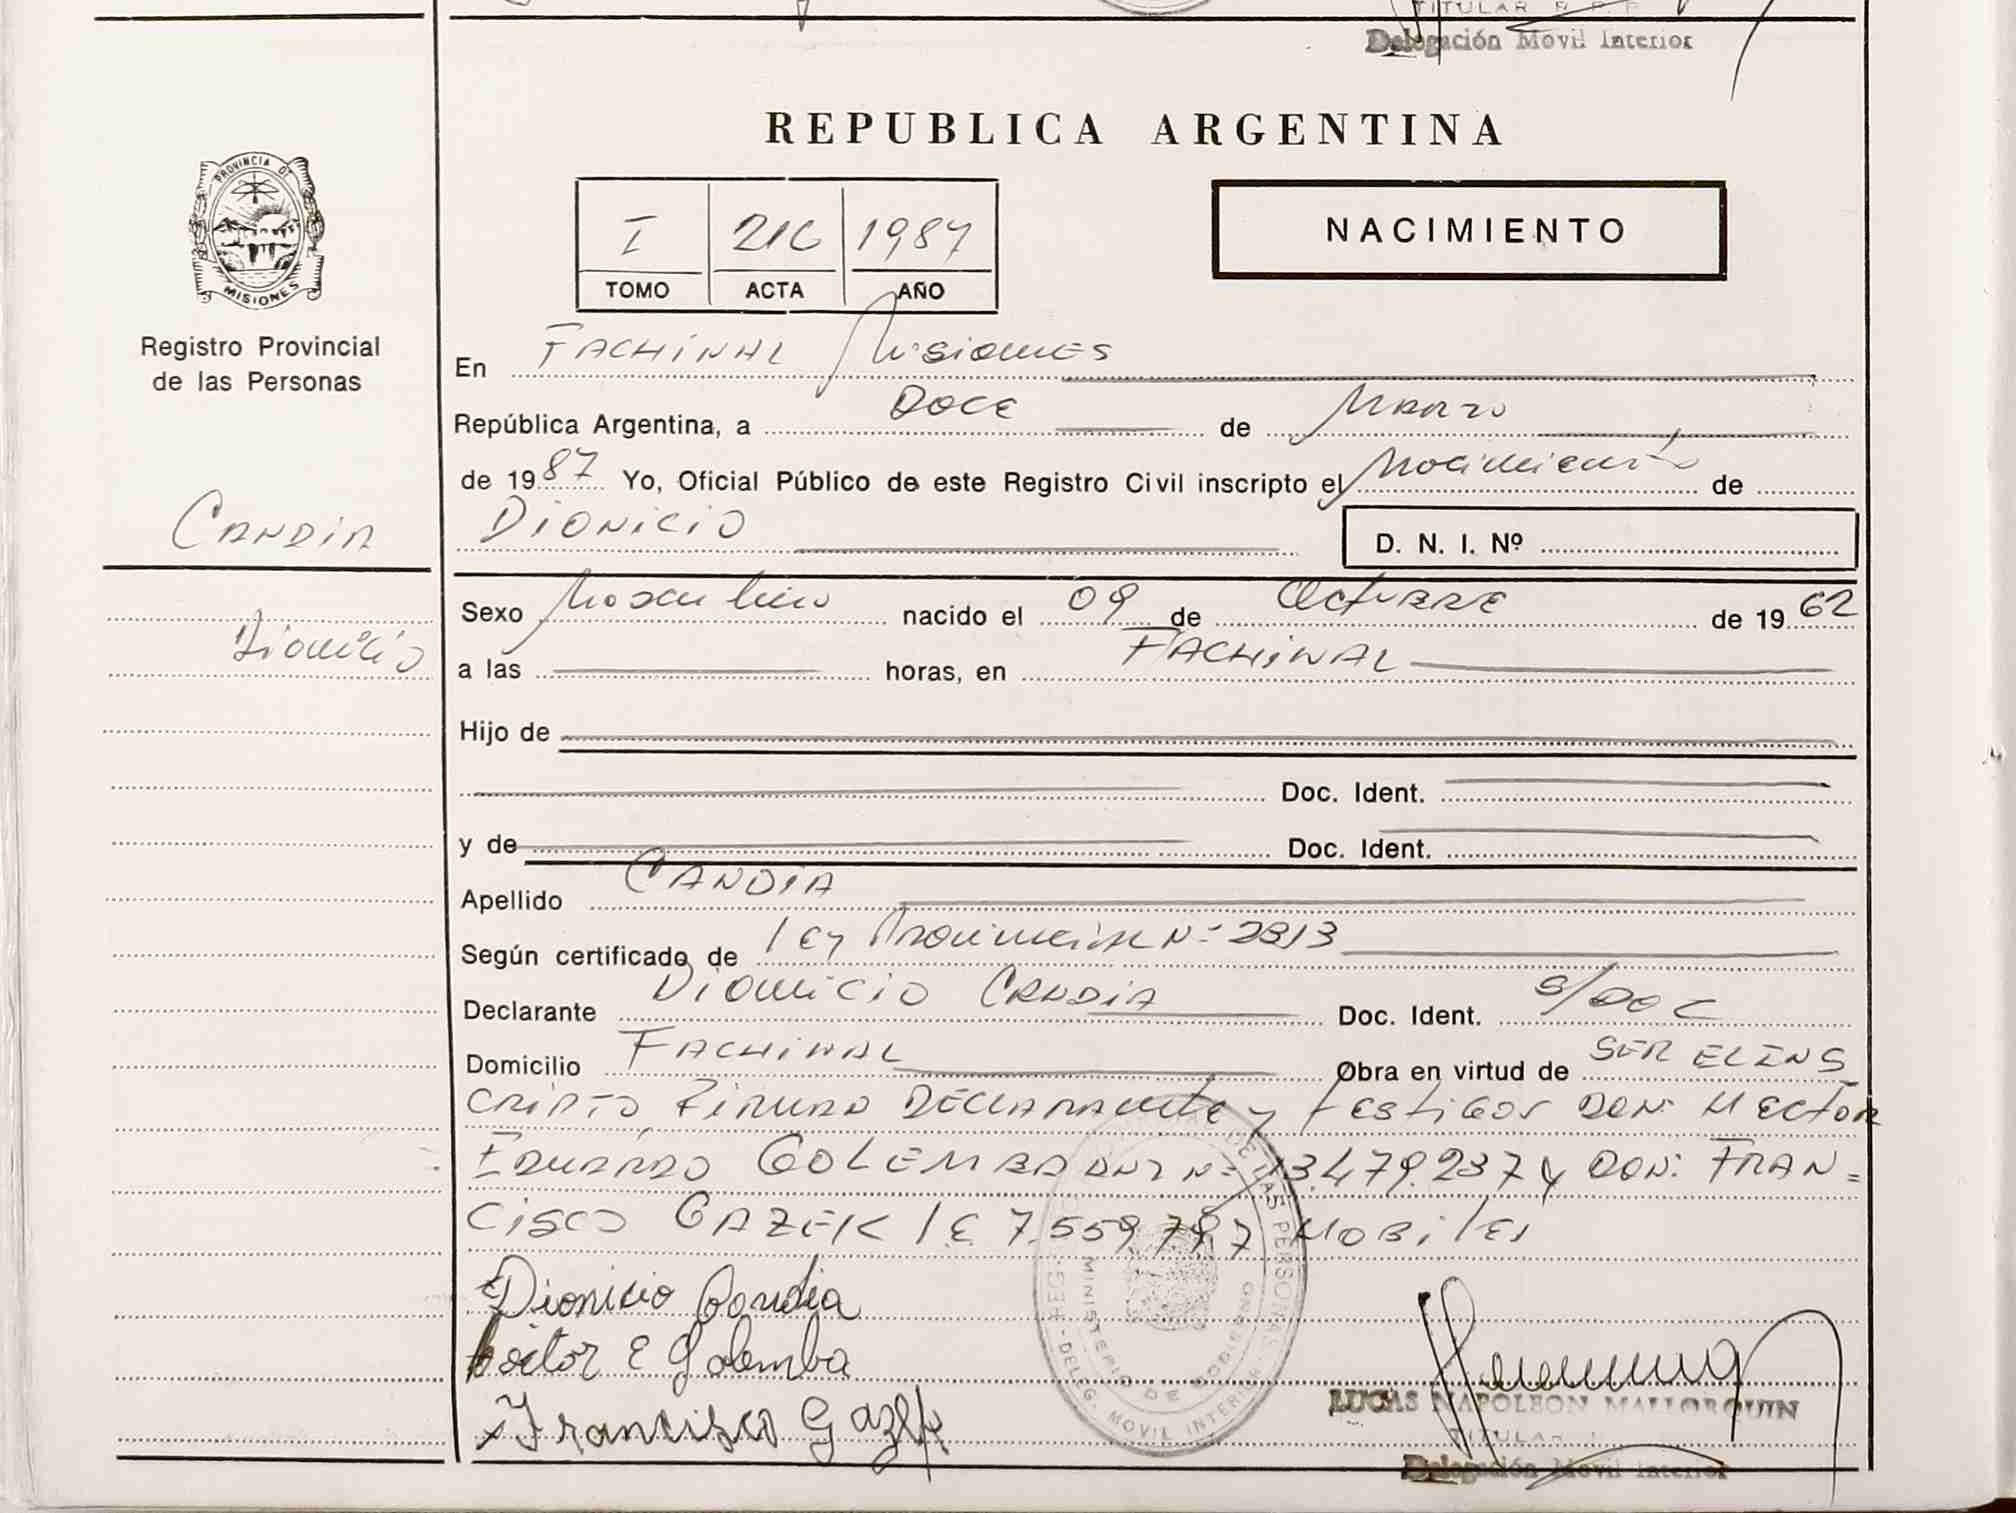 TITULAR R. P. P.
Delegación Movil Interior
REPUBLICA ARGENTINA
PROVINCIA DE
MISIONES
Registro Provincial
de las Personas
I 216 1987
TOMO ACTA AÑO
NACIMIENTO
En Fachinal Misiones
República Argentina, a Doce de Marzo
de 1987 Yo, Oficial Público de este Registro Civil inscripto el Nacimiento de
Dionicio
D. N. I. Nº
Candia
Dionicio
Sexo Masculino nacido el 09 de Octubre de 1962
a las horas, en Fachinal
Hijo de
Doc. Ident.
y de Doc. Ident.
Apellido Candia
Según certificado de Ley Provincial Nº 2313
Declarante Dionicio Candia Doc. Ident. S/DOC
Domicilio Fachinal Obra en virtud de SER EL INS
cripto Firman Declarante y testigos Don: Hector
Eduardo GOLEMBA DNI Nº 13.479.237 y Don: FRAN=
cisco GAZEK L.E 7.559.797 Mobiles
Dionicio Candia
Ector E Golemba
Francisco Gazek
MINISTERIO DE GOBIERNO
DELEG. MOVIL INTERIOR
LUCAS NAPOLEON MALLORQUIN
TITULAR
Delegación Movil Interior